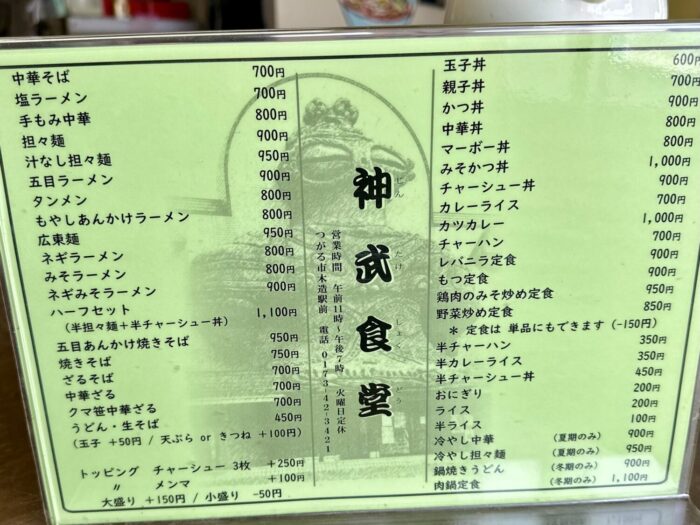 中華そば 700円
塩ラーメン 700円
手もみ中華 800円
担々麺 900円
汁なし担々麺 950円
五目ラーメン 900円
タンメン 800円
もやしあんかけラーメン 800円
広東麺 950円
ネギラーメン 800円
みそラーメン 800円
ネギみそラーメン 900円
ハーフセット 1,100円
(半担々麺＋半チャーシュー丼)
五目あんかけ焼きそば 950円
焼きそば 750円
ざるそば 700円
中華ざる 700円
クマ笹中華ざる 700円
うどん・生そば 450円
(玉子 +50円 / 天ぷら or きつね +100円)
トッピング チャーシュー 3枚 +250円
〃 メンマ +100円
大盛り +150円 / 小盛り -50円
神武食堂
じん たけ しょく どう
営業時間 午前11時～午後7時 火曜日定休
つがる市木造駅前 電話 0173-42-3421
玉子丼 600円
親子丼 700円
かつ丼 900円
中華丼 800円
マーボー丼 800円
みそかつ丼 1,000円
チャーシュー丼 900円
カレーライス 700円
カツカレー 1,000円
チャーハン 700円
レバニラ定食 900円
もつ定食 900円
鶏肉のみそ炒め定食 950円
野菜炒め定食 850円
＊ 定食は 単品にもできます (-150円)
半チャーハン 350円
半カレーライス 350円
半チャーシュー丼 450円
おにぎり 200円
ライス 200円
半ライス 100円
冷やし中華 (夏期のみ) 900円
冷やし担々麺 (夏期のみ) 950円
鍋焼きうどん (冬期のみ) 900円
肉鍋定食 (冬期のみ) 1,100円